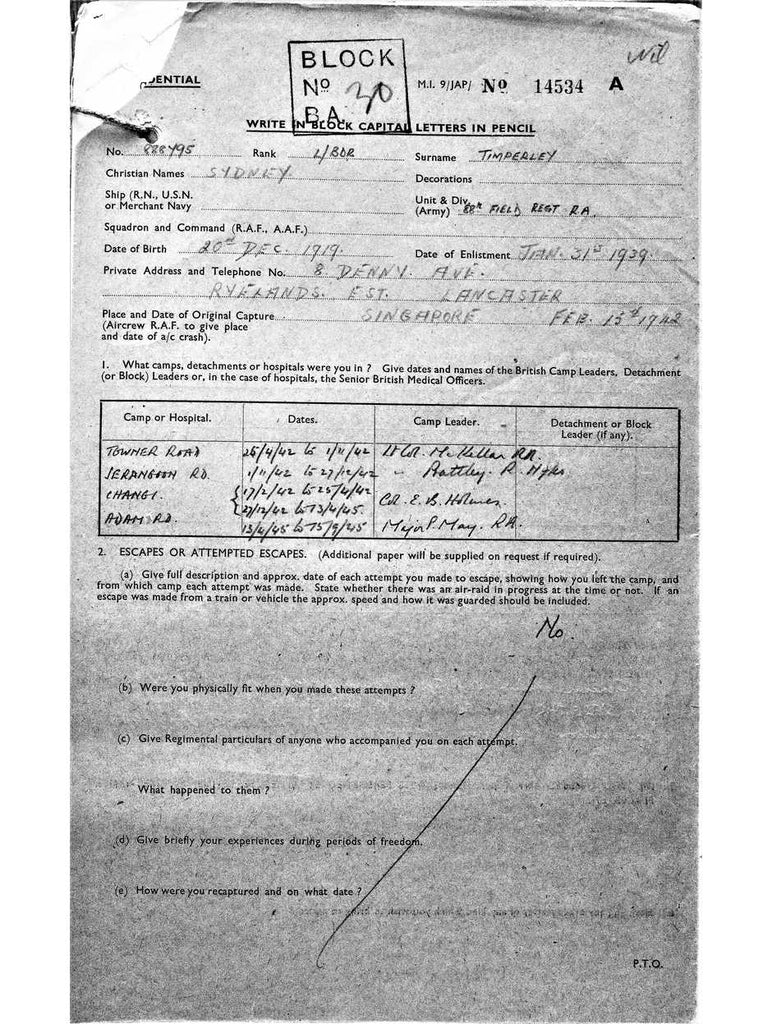 Nil
DENTIAL
BLOCK
No 30
B.A.
M.I. 9/JAP/ No 14534 A
WRITE IN BLOCK CAPITAL LETTERS IN PENCIL
No. 888795 Rank L/BDR Surname TIMPERLEY
Christian Names SYDNEY Decorations
Ship (R.N., U.S.N. or Merchant Navy
Unit & Div. (Army) 88th FIELD REGT R.A.
Squadron and Command (R.A.F., A.A.F.)
Date of Birth 20th DEC. 1919. Date of Enlistment JAN. 31st 1939.
Private Address and Telephone No. 8 DENNY AVE.
RYELANDS. EST. LANCASTER
Place and Date of Original Capture SINGAPORE FEB. 15th 1942
(Aircrew R.A.F. to give place
and date of a/c crash).
1. What camps, detachments or hospitals were you in ? Give dates and names of the British Camp Leaders, Detachment
(or Block) Leaders or, in the case of hospitals, the Senior British Medical Officers.
Camp or Hospital. Dates. Camp Leader. Detachment or Block
Leader (if any).
TOWNER ROAD 25/4/42 to 1/11/42 Lt Col. McKellar R.A.
SERANGOON RD. 1/11/42 to 27/12/42 " R.
CHANGI. 17/2/42 to 25/4/42 Col. E. B. Holmes.
27/12/42 to 13/4/45.
ADAM RD. 13/4/45 to 15/9/45 Major P. May. R.A.
2. ESCAPES OR ATTEMPTED ESCAPES. (Additional paper will be supplied on request if required).
(a) Give full description and approx. date of each attempt you made to escape, showing how you left the camp, and
from which camp each attempt was made. State whether there was an air-raid in progress at the time or not. If an
escape was made from a train or vehicle the approx. speed and how it was guarded should be included.
No.
(b) Were you physically fit when you made these attempts ?
(c) Give Regimental particulars of anyone who accompanied you on each attempt.
What happened to them ?
(d) Give briefly your experiences during periods of freedom.
(e) How were you recaptured and on what date ?
P.T.O.